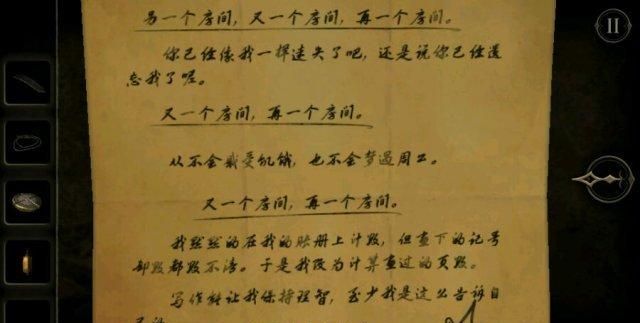 另一个房间，又一个房间，再一个房间。
你已经像我一样迷失了吧，还是说你已经遗
忘我了呢。
又一个房间，再一个房间。
从不会感受饥饿，也不会梦遇周公。
又一个房间，再一个房间。
我默默的在我的账册上计数，但画下的记号
却数都数不清。于是我改为计算画过的页数。
写作能让我保持理智，至少我是这么告诉自